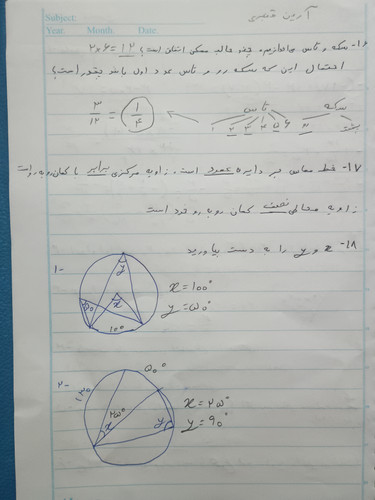 Subject:
Year. Month. Date.
آرمین قنبری
۱۶- سکه و تاس می‌اندازیم. چند حالت ممکن است؟ ۱۲ = ۶×۲
احتمال این که سکه رو و تاس عدد اول باشد چقدر است؟
سکه تاس
رو پشت ۱ ۲ ۳ ۴ ۵ ۶
۳/۱۲ = ۱/۴
۱۷- خط مماس بر دایره عمود است. زاویه مرکزی برابر با کمان روبه رو است
زاویه محاطی نصف کمان روبه رو خود است
۱۸- x و y را به دست بیاورید
۱-
y
x
۵۰
۱۰۰
x = ۱۰۰°
y = ۵۰°
۲-
۵۰°
۱۳۰
۲۵°
x
y
x = ۲۵°
y = ۹۰°